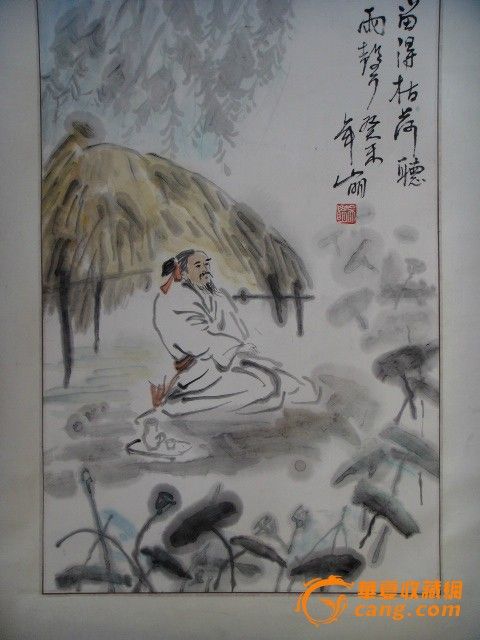 留得枯荷聽
雨聲癸未
年
華夏收藏網
cang.com